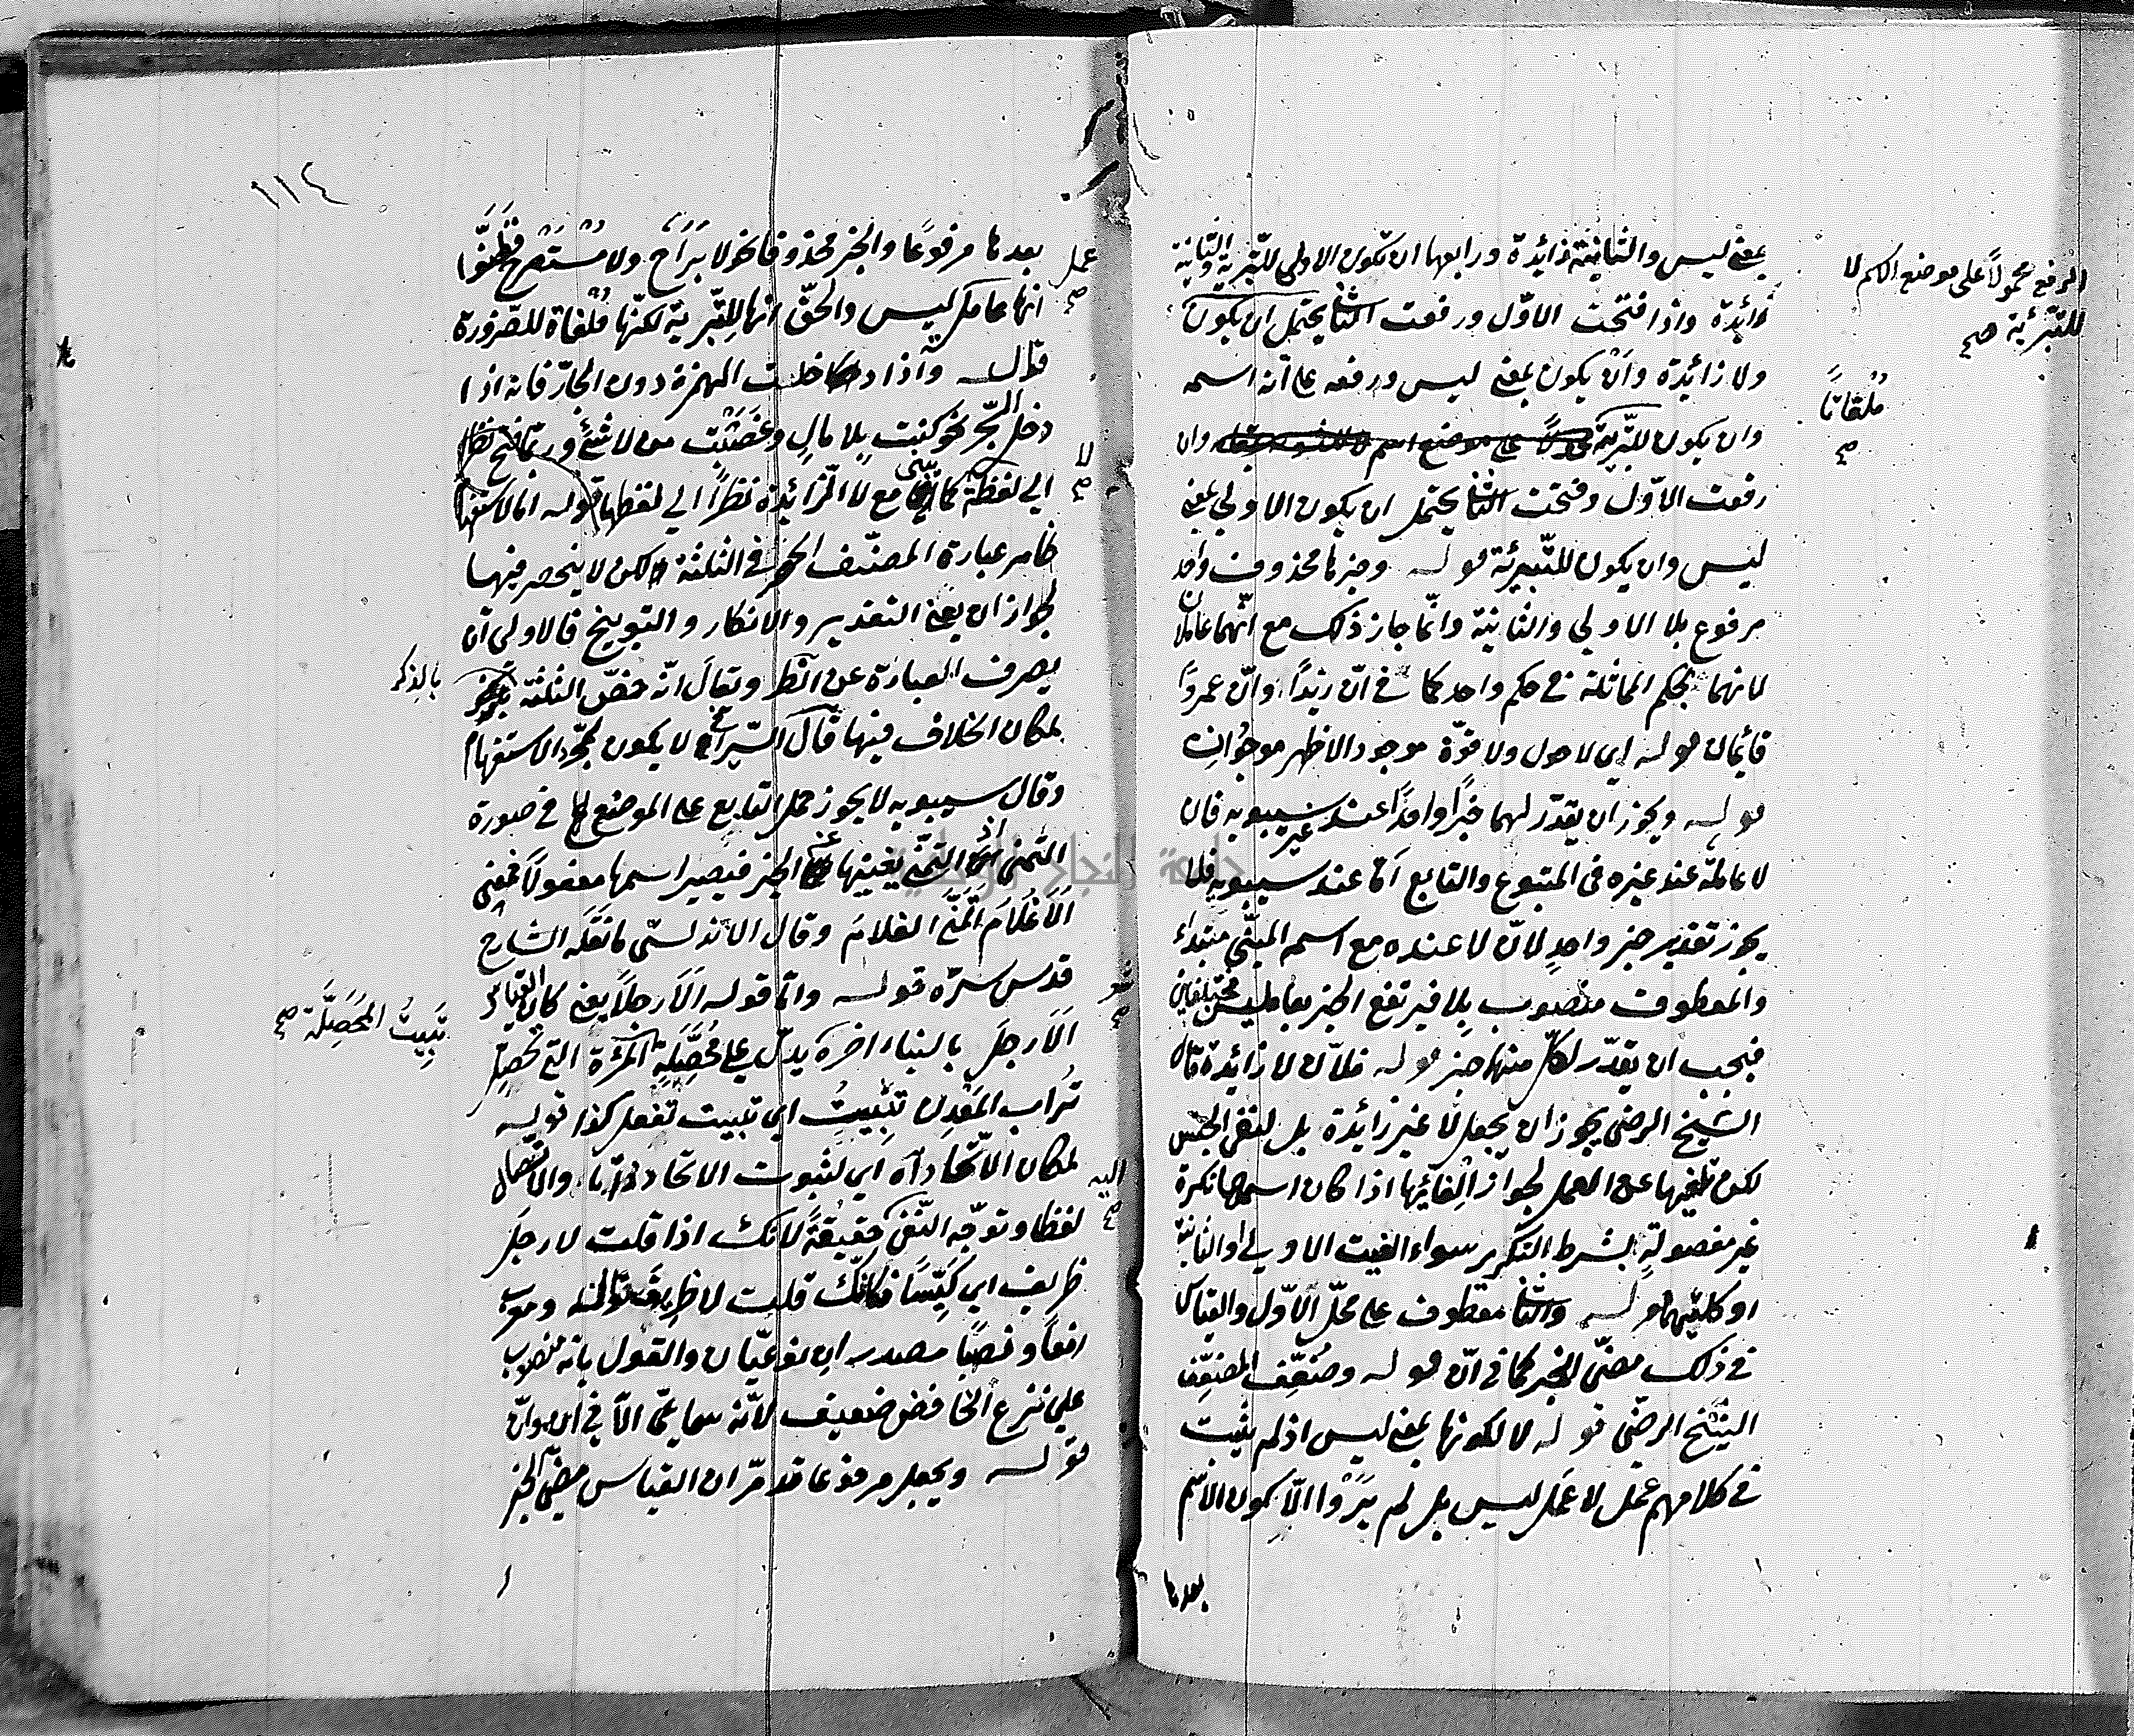 بمعنى ليس والثانية زائدة ورابعها ان تكون الاولى للتبرية والثانية
زائدة واذا فتحت الاول ورفعت الثانى يحتمل ان يكون
ولا زائدة وان يكون بمعنى ليس ورفعه على انه اسمه
وان يكون للتبرئة وان
رفعت الاول وفتحت الثانى يحتمل ان يكون الاولى بمعنى
ليس وان يكون للتبرئة قوله وخبرها محذوف واحد
مرفوع بلا الاولى والثانية وانما جاز ذلك مع انهما عاملان
لانهما بحكم المماثلة فى حكم واحد كما فى ان زيدا وان عمروا
قائمان قوله اى لا حول ولا قوة موجود الاظهر موجودان
قوله ويجوز ان يقدر لهما خبرا واحدا عند غير سيبويه فان
لا عاملة عند غيره فى المتبوع والتابع اما عند سيبويه فلا
يجوز تقدير خبر واحد لان لا عنده مع اسمه المبنى مبتداء
والمعطوف منصوب بلا فيرتفع الخبر بعاملين مختلفين
فيجب ان يقدر لكل منهما خبر قوله فلان لا زائدة قال
الشيخ الرضى يجوز ان يجعل لا غير زائدة بل لنفى الجنس
لكن تلغيها عن العمل لجواز الغائها اذا كان اسمها نكرة
غير مفصولة بشرط التكرير سواء الغيت الاولى او الثانية
او كلتيهما قوله والثانى معطوف على محل الاول والقياس
فى ذلك مضى الخبر كما فى ان قوله وضعف المضعف
الشيخ الرضى قوله لا لكونها بمعنى ليس اذ لم يثبت
فى كلامهم عمل لا عمل ليس بل لم يردوا الا كون الاسم
بعدها
الرفع محمولا على موضع اسم لا
للتبرئة صح
ملقاتا
صح
١١٤
بعدها مرفوعا والخبر محذوفا نحو لا براح ولا مستصرخ فظنوا
انها عاملة كليس والحق انها للتبرية لكنها ملغاة للضرورة
قال واذا دخلت الهمزة دون الجار فانه اذا
دخل الجر نحو كنت بلا مال وغضبت من لا شئ وربما فتح نظرا
الى لفظة كما بنى مع لا الزائدة نظرا الى لفظها قوله اما الاستفهام
ظاهر عبارة المصنف الحصر فى الثلثة لكن لا ينحصر فيها
لجواز ان يعنى التقدير والانكار والتوبيخ فالاولى ان
يصرف العبارة عن النظر ويقال انه خص الثلثة
لمكان الخلاف فيها قال السيرافى لا يكون لمجرد الاستفهام
وقال سيبويه لا يجوز حمل التابع على الموضع فى صورة
التمنى اذ التمنى يغنيها عن الخبر فيصير اسمها مفعولا فمعنى
الا غلام اتمنى الغلام وقال الاندلسى ما نقله الشارح
قدس سره قوله واما قوله الا رجلا يعنى كان القياس
الا رجل بالبناء اخره يدل على محصلة المرأة التى تحصل
تراب المعدن تبيت اى تبيت تفعل كذا قوله
لمكان الاتحاد اه اى لثبوت الاتحاد والاتصال
لفظا وتوجه النفى حقيقة لانك اذا قلت لا رجل
ظريف اى كيسا فكانك قلت لا ظريف قوله ومعرب
رفعا ونصبا مصدر اى نوعيان والقول بانه منصوب
على نزع الخافض ضعيف لانه سماعى الا فى ان وان
قوله ويجعل مرفوعا قد مر ان القياس مضى الخبر
عمل
صح
لا
صح
بالذكر
تبيت المحصلة صح
اليه
صح
جامعة النجاح الوطنية